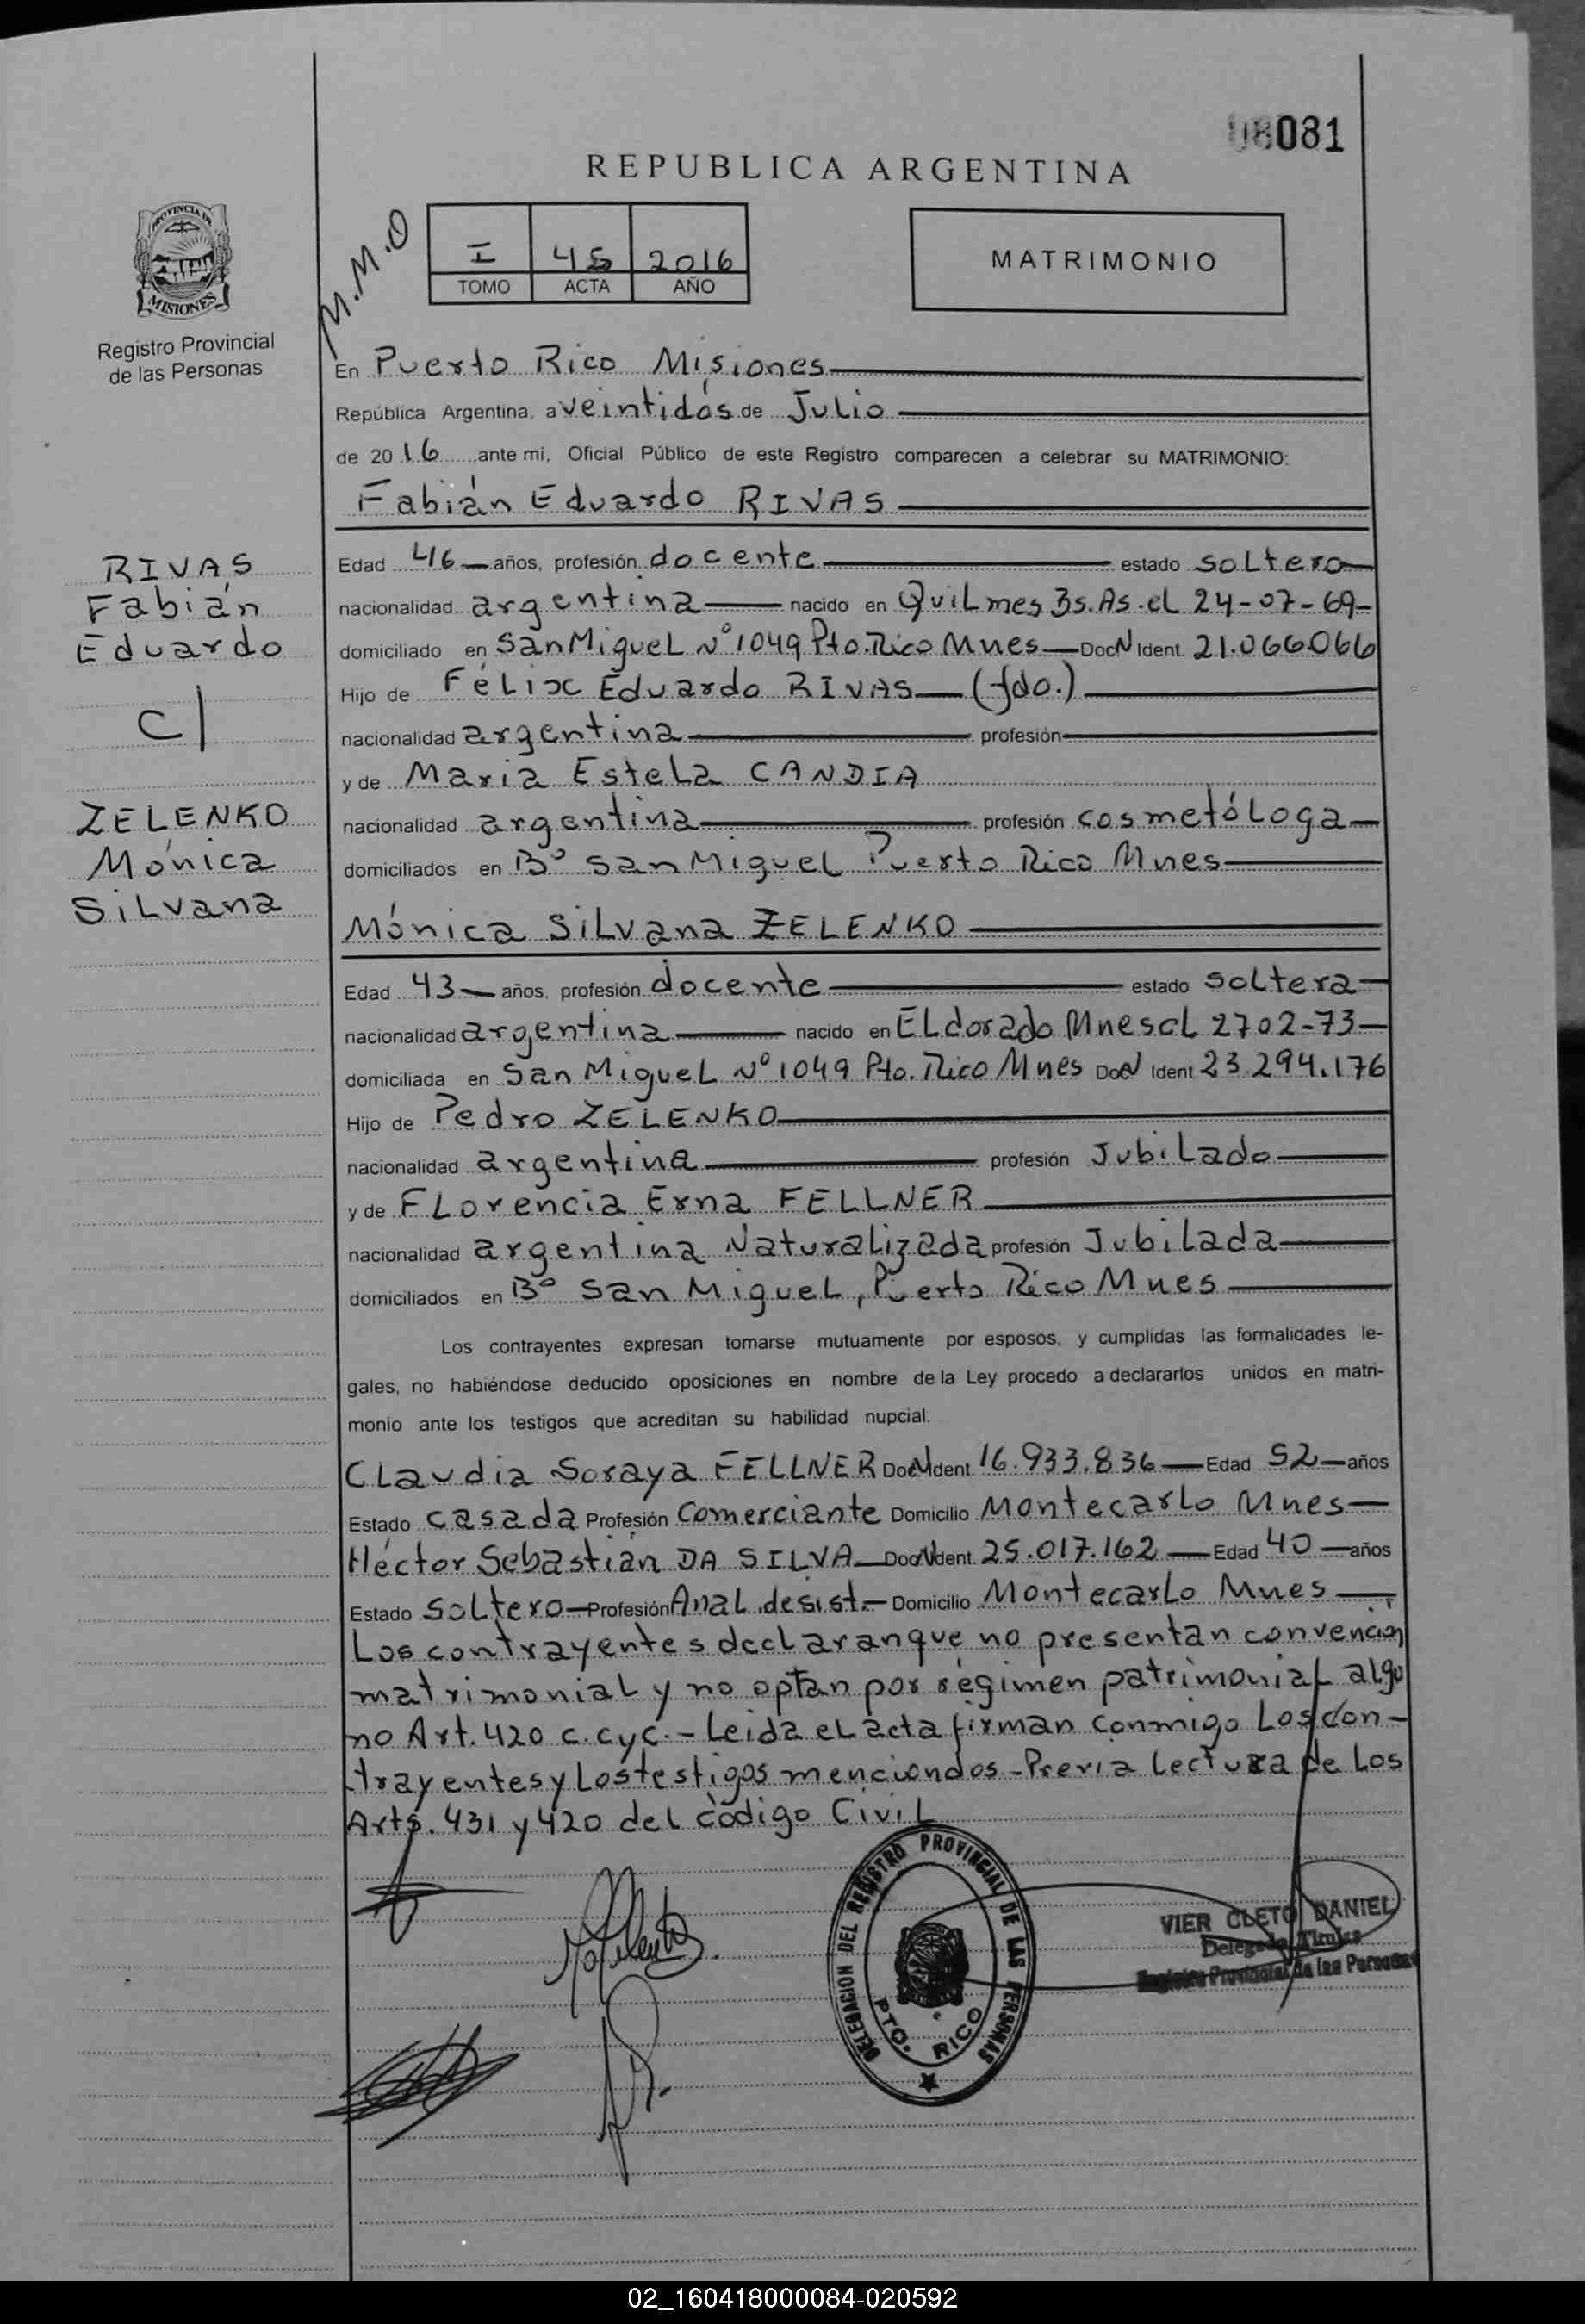 081
REPUBLICA ARGENTINA
M.M.O
I 45 2016
TOMO ACTA AÑO
MATRIMONIO
PROVINCIA DE
MISIONES
Registro Provincial
de las Personas
En Puerto Rico Misiones
República Argentina, a veintidós de Julio
de 2016, ante mí, Oficial Público de este Registro comparecen a celebrar su MATRIMONIO:
Fabián Eduardo RIVAS
RIVAS
Fabián
Eduardo
C/
ZELENKO
Mónica
Silvana
Edad 46 años, profesión docente estado soltero
nacionalidad argentina nacido en Quilmes Bs.As. el 24-07-69-
domiciliado en San Miguel Nº 1049 Pto. Rico Mnes Doc N Ident. 21.066066
Hijo de Félix Eduardo RIVAS (fdo.)
nacionalidad argentina profesión
y de Maria Estela CANDIA
nacionalidad argentina profesión cosmetóloga
domiciliados en Bº San Miguel Puerto Rico Mnes
Mónica Silvana ZELENKO
Edad 43 años, profesión docente estado soltera
nacionalidad argentina nacido en Eldorado Mnes el 2702-73
domiciliada en San Miguel Nº 1049 Pto. Rico Mnes Doc N Ident 23.294.176
Hijo de Pedro ZELENKO
nacionalidad argentina profesión Jubilado
y de Florencia Erna FELLNER
nacionalidad argentina Naturalizada profesión Jubilada
domiciliados en Bº San Miguel, Puerto Rico Mnes
Los contrayentes expresan tomarse mutuamente por esposos, y cumplidas las formalidades le-
gales, no habiéndose deducido oposiciones en nombre de la Ley procedo a declararlos unidos en matri-
monio ante los testigos que acreditan su habilidad nupcial.
Claudia Soraya FELLNER Doc N Ident 16.933.836 Edad 52 años
Estado casada Profesión Comerciante Domicilio Montecarlo Mnes
Héctor Sebastián DA SILVA Doc N Ident. 25.017.162 Edad 40 años
Estado soltero Profesión Anal. de sist. Domicilio Montecarlo Mnes
Los contrayentes declaran que no presentan convención
matrimonial y no optan por régimen patrimonial algu
no Art. 420 c.cyc.- Leida el acta firman conmigo Los con-
trayentes y Los testigos menciondos - Previa Lectura de Los
Arts. 431 y 420 del còdigo Civil
DELEGACION DEL REGISTRO PROVINCIAL DE LAS PERSONAS
PTO. RICO
VIER CLETO DANIEL
Delegado Titular
Registro Provincial de las Personas
02_160418000084-020592